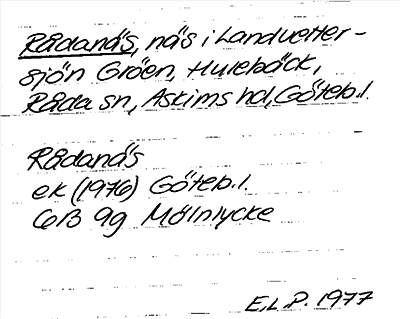 Rådanäs, näs i Landvetter-
sjön Gröen, Hulebäck,
Råda sn, Askims hd, Göteb.l.
Rådanäs
ek (1976) Göteb.l.
6B 9g Mölnlycke
E.L.P. 1977